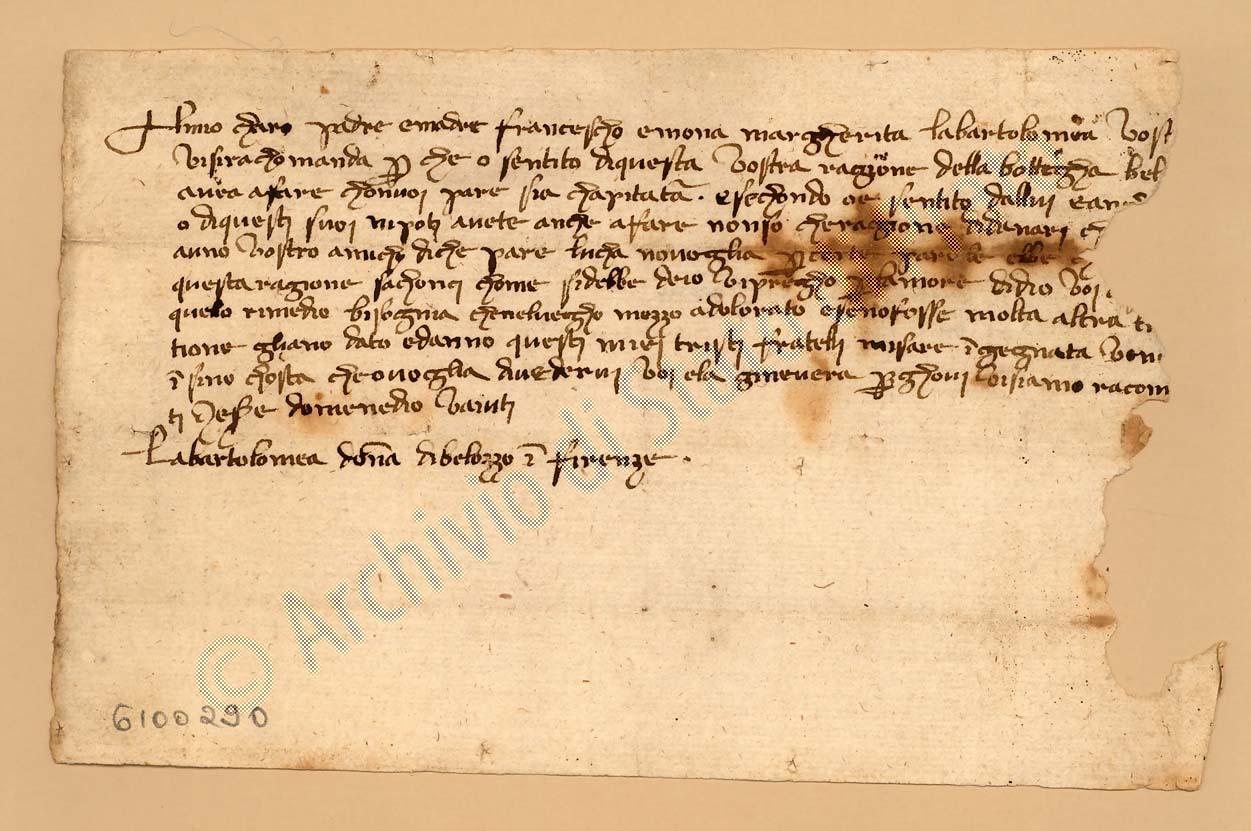 charo padre emadre francescho emona margherita labartolomea vost
visirachomanda p che o sentito diquesta vostra ragione della bottegha bel
avea afare chonvoi pare sia chapitata . esechondo oe sentito dallui ean
o diquesti suoi nipoti avete anche afare nonso cheragione didanari ch
anno vostro amicho diche pare lucha novoglia
questa ragione sachonci chome sidebbe deio vipregho p lamore didio voi
quelo rimedio bisogna cheneluogho mezzo adolorato esenofosse molta altra tr
tione ghano dato edanno questi miei tristi fratelli misare ĩgegnata veni
ĩ sino chosta cheovoglia divedervi voi ela ginevera pghovi visiamo racom
ti domenedio vaiuti
Labartolomea dona dibelozzo ĩ firenze .
6100290
© Archivio di Stato